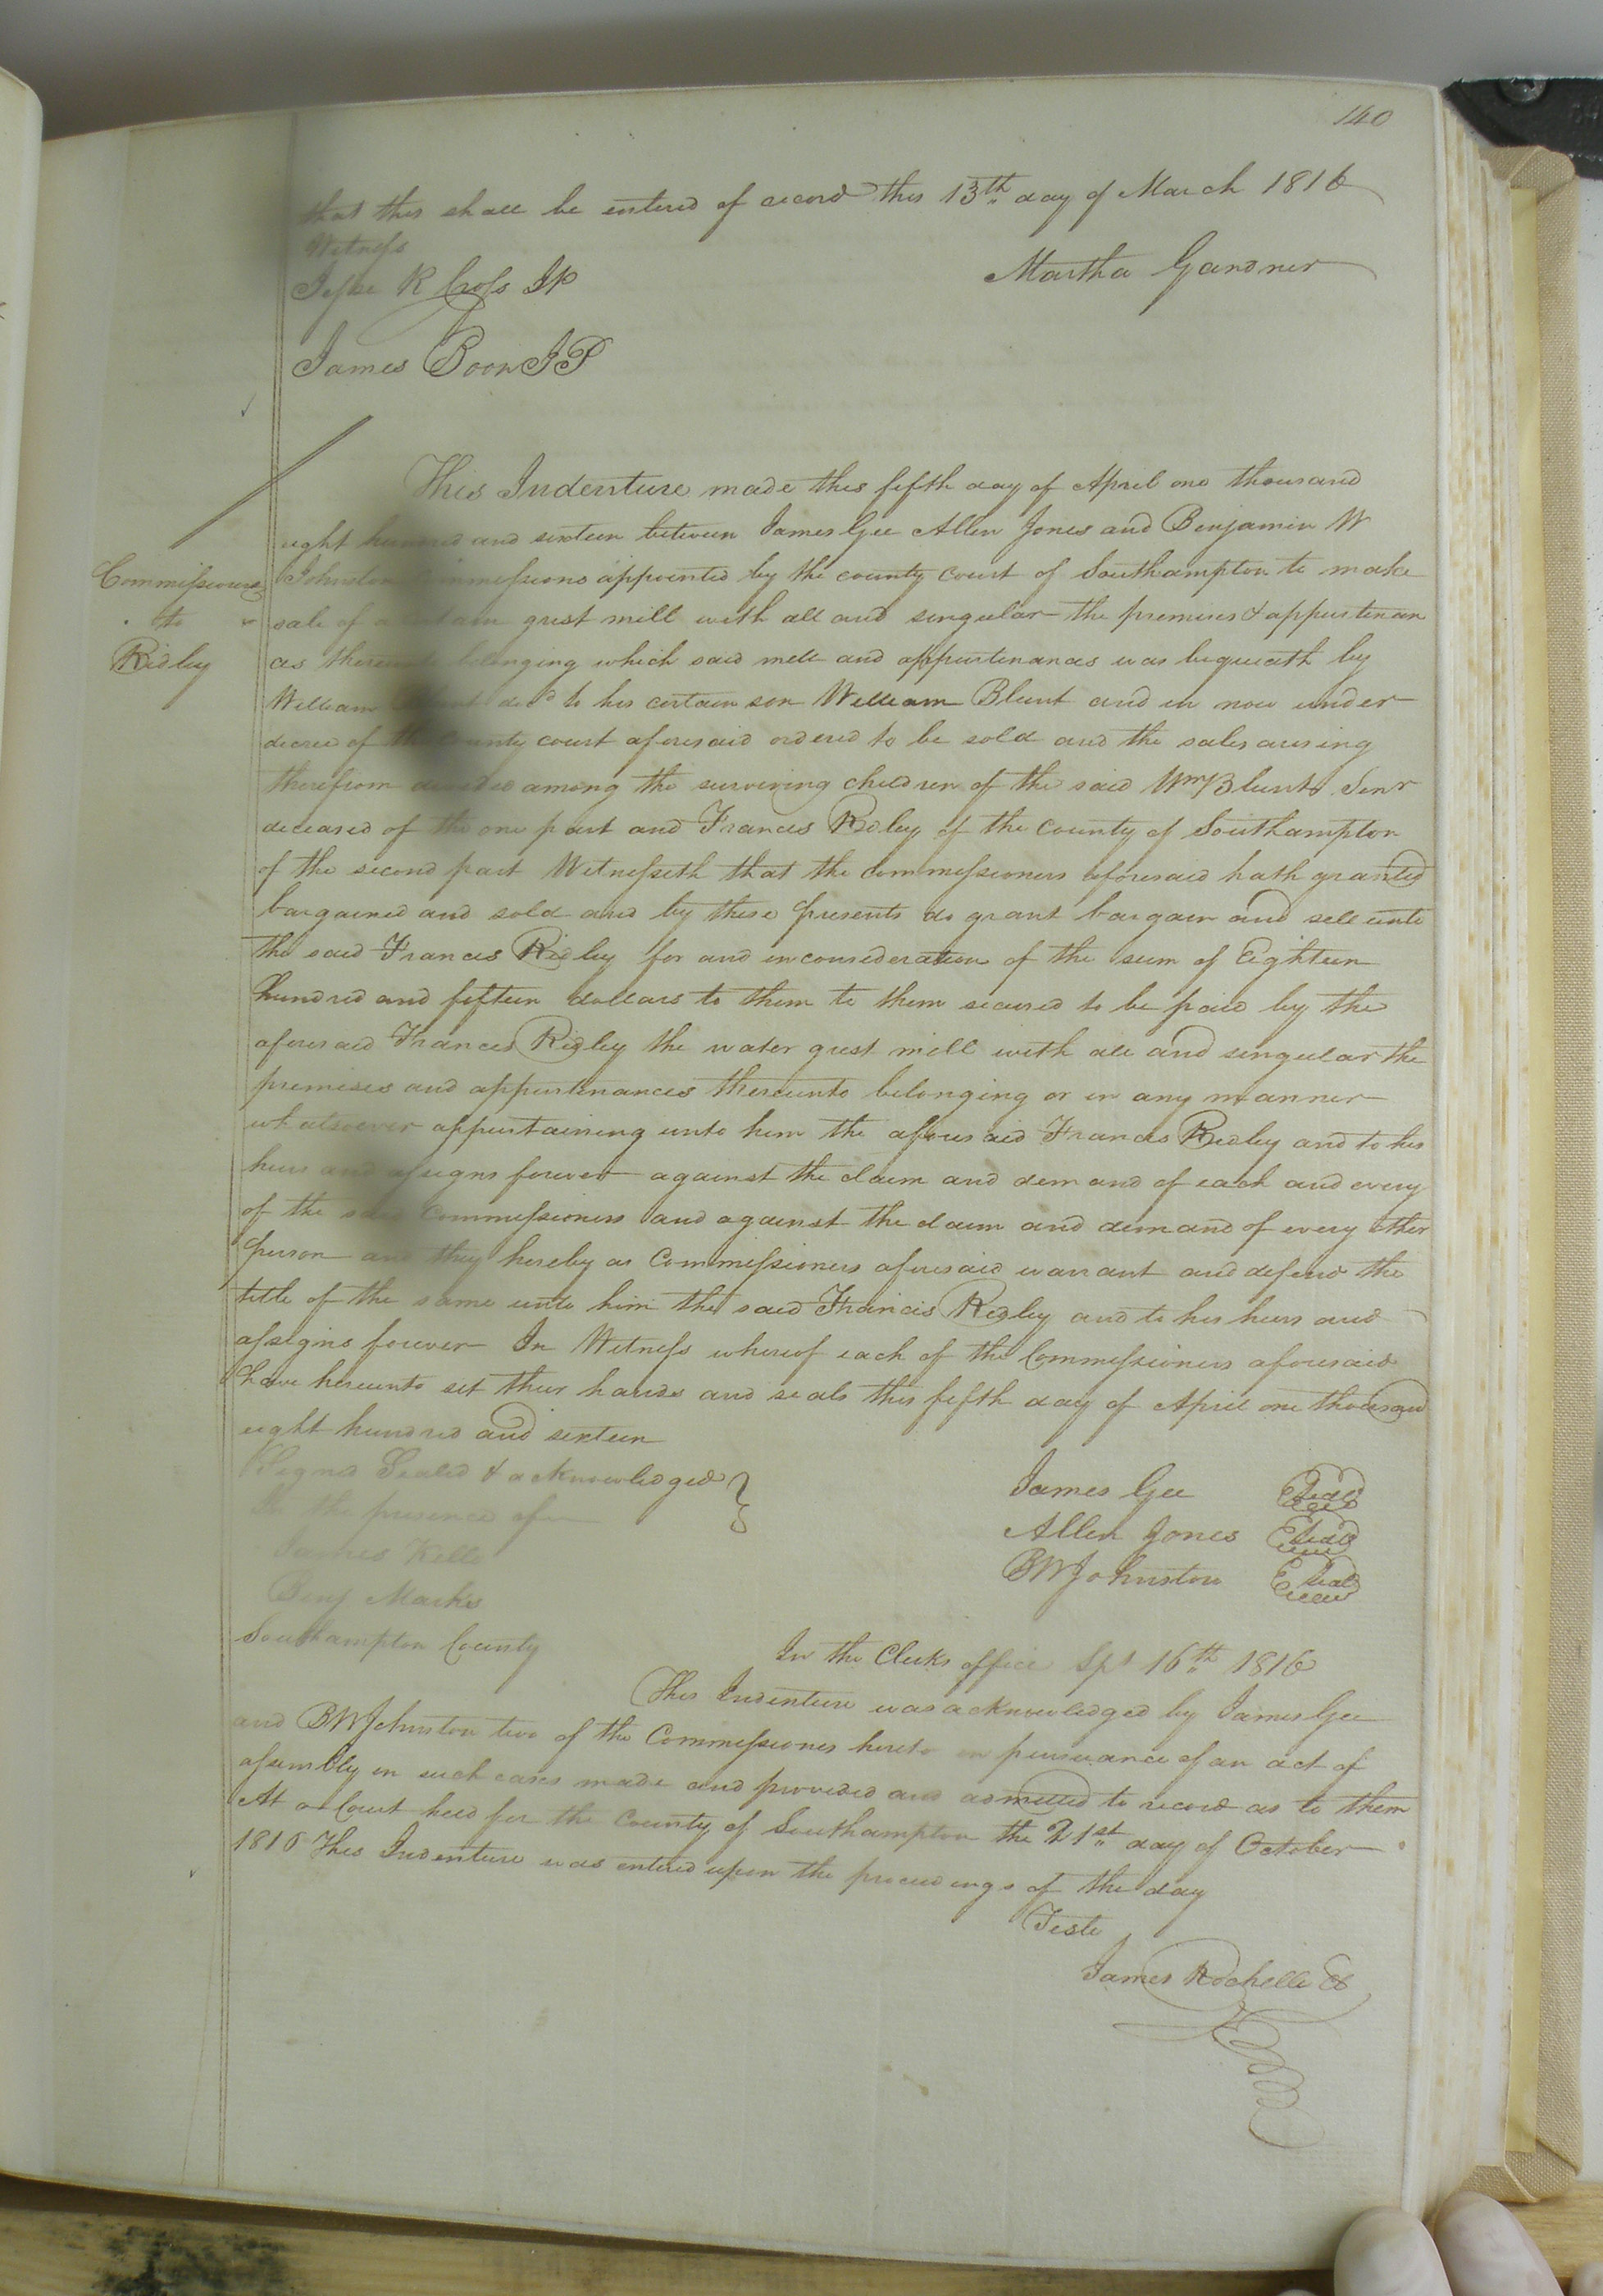 140
that this shall be entered of record this 13th day of March 1816
Witness
Jesse R Cross JP
Martha Gardner
James Boon JP
This Indenture made this fifth day of April one thousand
eight hundred and sixteen between James Gee Allen Jones and Benjamin W
Commissioners
to
Ridley
Johnston Commissions appointed by the county court of Southampton to make
sale of a certain grist mill with all and singular the premises & appurtenan
ces thereunto belonging which said mill and appurtenances was bequeath by
William Blunt decd to his certain son William Blunt and in now under
decree of the County court aforesaid ordered to be sold and the sales arising
therefrom divided among the surviving children of the said Wm Blunt Senr
deceased of the one part and Francis Ridley of the County of Southampton
of the second part Witnesseth that the Commissioners aforesaid hath granted
bargained and sold and by these presents do grant bargain and sell unto
the said Francis Ridley for and in consideration of the sum of Eighteen
hundred and fifteen dollars to them to them secured to be paid by the
aforesaid Francis Ridley the water grist mill with all and singular the
premises and appurtenances thereunto belonging or in any manner
whatsoever appurtaining unto him the aforesaid Francis Ridley and to his
heirs and assigns forever against the claim and demand of each and every
of the said Commissioners and against the claim and demand of every other
person and they hereby as Commissioners aforesaid warrant and defend the
title of the same unto him the said Francis Ridley and to his heirs and
assigns forever In Witness whereof each of the Commissioners aforesaid
have hereunto set their hands and seals this fifth day of April one thousand
eight hundred and sixteen
Signed Sealed & acknowledged
In the presence of
James Gee Seal
Allen Jones Seal
BW Johnston Seal
James Kello
Benj Marks
Southampton County
In the Clerks office Spt 16th 1816
This Indenture was acknowledged by James Gee
and BW Johnston two of the Commissiones hereto in pursuance of an act of
assembly in such cases made and provided and admitted to record as to them
At a Court held for the County of Southampton the 21st day of October
1816 This Indenture was entered upon the proceedings of the day
Teste
James Rochelle